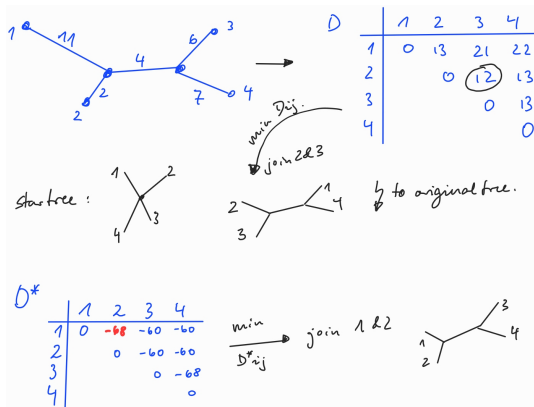 1 11 4 6 3
2 2 7 4
D 1 2 3 4
1 0 13 21 22
2 0 12 13
3 0 13
4 0
min Dij.
join 2&3
startree :
1 2
4 3
2 1
3 4
↯ to original tree.
D*
1 2 3 4
1 0 -68 -60 -60
2 0 -60 -60
3 0 -68
4 0
min
D*ij
join 1 & 2
1 3
2 4